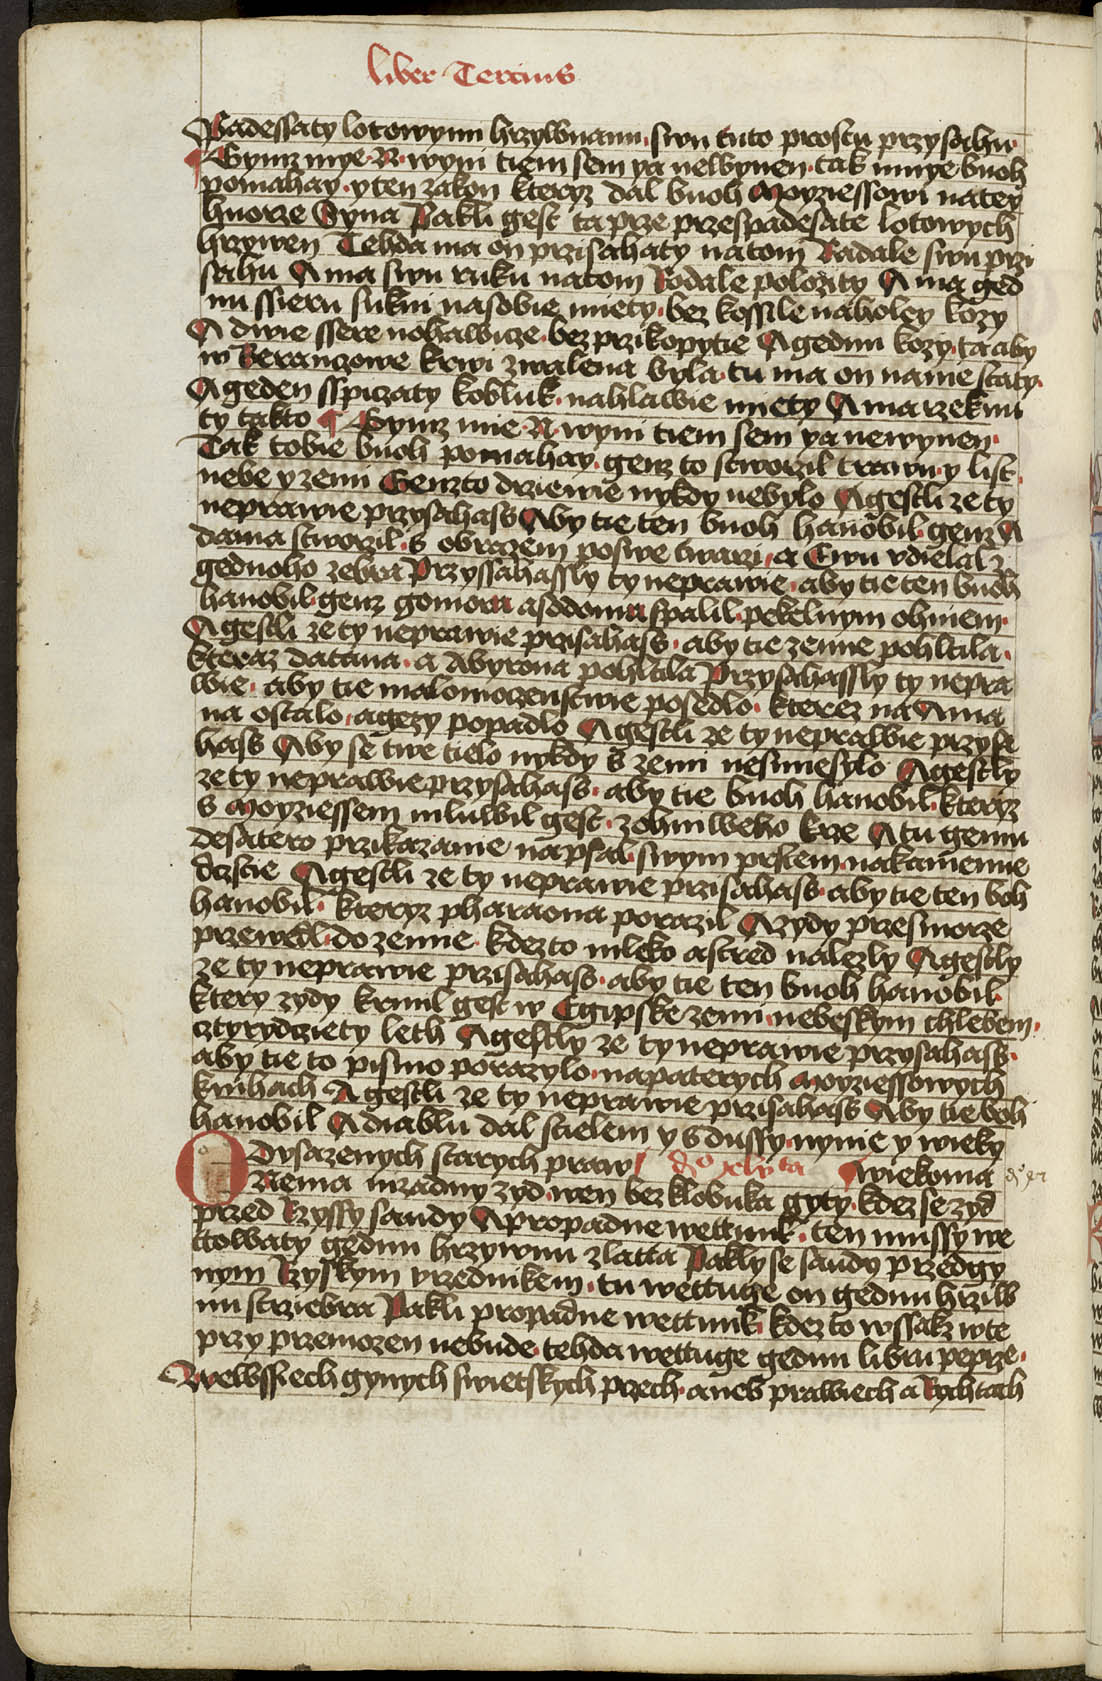 liber Tercius
Padessaty lotowymi hrzywnami swu tuto prostu przysahu
Gymz mye N wyni tiem sem ya newynen tak mnye buoh
pomahay y ten zakon kteryz dal buoh Moyziessowi natey
huorze Syna Pakli gest ta prze przespadesate lotowych
hrzywen Tehda ma on przisahaty natom Radale swu przi
sahu A ma swu ruku natom Rodale polozity A ma ged
nu ssieru sukni nasobie miety bez kossile naholey kozy
A dwie ssere nohawicze bez przikopytie A gednu kozy ta aby
w Beranczowe krwi zwalena byla tu ma on nanie staty
A geden sspiczaty kobluk nahlawie miety A ma rzeknu
ty takto Gymz mie N wyni tiem sem ya newynen
Tak tobie buoh pomahay genz to stworzil trawu y list
nebe y zemi Genzto drziewie nykdy nebylo A gestli ze ty
neprawie przysahass Aby tie ten buoh hanobil genz A
dama stworzil s obrazem poswe twarzi a Ewu vdielal z
gednoho zebra Przyssahassly ty neprawie aby tie ten buoh
hanobil genz gomoru asodomu spalil pekelnym ohniem
A gestli ze ty neprawie przisahass aby tie zemie pohltila
kteraz datana a Abyrona pohltila Przysahassly ty nepra
wie aby tie malomoczenstwie posedlo kterez na Ama
na ostalo agezy popadlo A gestli ze ty neprawie przysa
hass Aby se twe tielo nykdy s zemi nesmiesylo A gestly
ze ty neprawie przysahass aby tie buoh hanobil kteryz
s Moyziessem mluwil gest z ohniweho krze A tu gemu
desatero przikazanie napsal swym prstem nakamenne
dczstie A gestli ze ty neprawie przisahass aby tie ten boh
hanobil kteryz pharaona porazil A zydy przesmorze
przewedl do zemie kdezto mleko a stred nalezly A gestly
ze ty neprawie przisahass aby tie ten buoh hanobil
ktery zydy krmil gest w Egipske zemi nebeskym chlebem
cztyrydcziety leth A gestly ze ty neprawie przysahass
aby tie to pismo porazylo napaterych Moyziessowych
knihach A gestli ze ty neprawie przisahass Aby tie boh
hanobil A diablu dal stielem y s dussy nynie y wieky
O Dysazenych starych praw wiekoma
Nema mzadny zyd wen bez klobuka gyty kdez se zyd
przed Rzyssy saudy A propadne wettunk ten mussy we
ttowaty gednu hrzywnu zlatta Pakly se saudy przedgy
nym Rzyskym vrzednikem tu wettuge on gednu hrziw
nu strziebra Pakli propadne wettunk kdezto wssakz wte
przy przemozen nebude tehda wettuge gednu libru peprze
Wewssiech gynych swietskych przech aneb prawiech a Rychtach